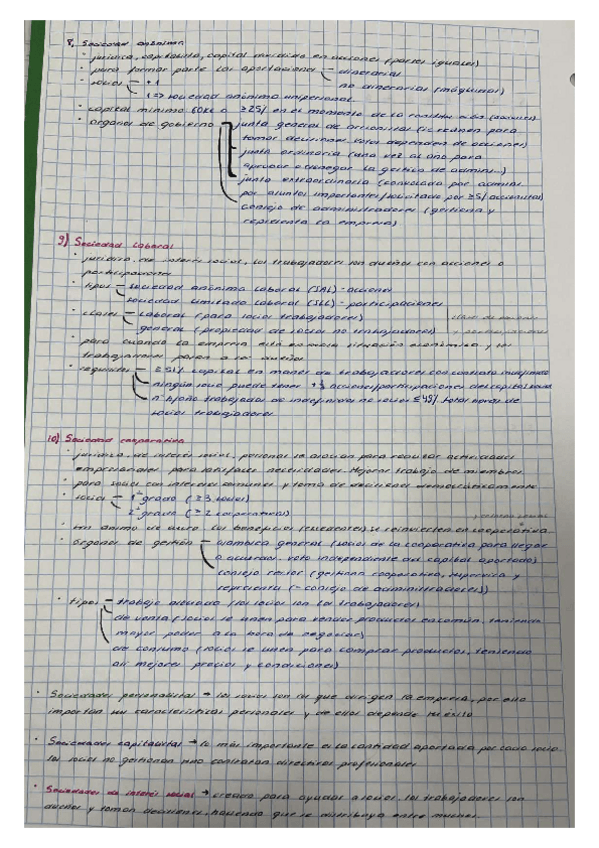 8. Sociedad anónima
· jurídica, capitalista, capital dividido en acciones (partes iguales)
· para formar parte las aportaciones dinerarias
no dinerarias (máquinas)
· socios + 1
1 => sociedad anónima unipersonal
· capital mínimo 60k€ o ≥25% en el momento de la
· órganos de gobierno junta general de accionistas (se reúnen para
tomar decisiones, votos dependen de acciones)
junta ordinaria (una vez al año para
aprobar o denegar la gestión de admins...)
junta extraordinaria (convocada por admins
por asuntos importantes/solicitado por ≥5% accionistas)
consejo de administradores (gestiona y
representa la empresa)
9) Sociedad Laboral
· jurídica, de interés social, los trabajadores son dueños con acciones o
participaciones
· tipos sociedad anónima laboral (SAL) - acciones
sociedad limitada laboral (SLL) - participaciones
· clases laboral (para socios trabajadores)
general (propiedad de socios no trabajadores)
clases de acciones
y participaciones
· para cuando la empresa está en mala situación económica y los
trabajadores pasan a ser dueños
· requisitos ≥51% capital en manos de trabajadores con contrato indefinido
ningún socio puede tener +⅓ acciones/participaciones del capital social
nº h/año trabajadas de indefinidos no socios ≤49% total horas de
socios trabajadores
10) Sociedad cooperativa
· jurídica, de interés social, personas se asocian para realizar actividades
empresariales para satisfacer necesidades. Mejorar trabajo de miembros.
· para socios con intereses comunes y toma de decisiones democráticamente
· socios 1º grado (≥3 socios)
2º grado (≥2 cooperativas)
· sin ánimo de lucro. Los beneficios (excedentes) se reinvierten en cooperativa
· órganos de gestión asamblea general (socios de la cooperativa para llegar
a acuerdos, voto independiente del capital aportado)
consejo rector (gestiona cooperativa, supervisa y
representa (~ consejo de administradores))
· tipos trabajo asociado (los socios son los trabajadores)
de venta (socios se unen para vender productos en común, teniendo
mayor poder a la hora de negociar)
de consumo (socios se unen para comprar productos, teniendo
así mejores precios y condiciones)
· Sociedades personalistas → los socios son los que dirigen la empresa, por ello
importan sus características personales y de ellos depende su éxito
· Sociedades capitalistas → lo más importante es la cantidad aportada por cada socio.
los socios no gestionan sino contratan directivos profesionales
· Sociedades de interés social → creado para ayudar a socios, los trabajadores son
dueños y toman decisiones, haciendo que se distribuya entre muchos.